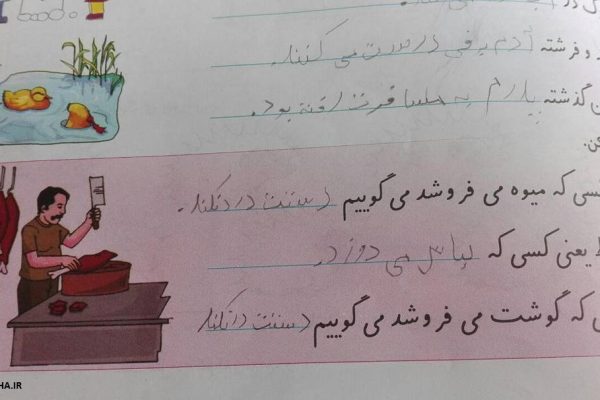 و فرشته آدم برفی درست می کنند.
ن گذشته پدرم به مسافرت رفته بود.
کن.
سی که میوه می فروشد می گوییم دستت درد نکند.
ط یعنی کسی که لباس می دوزد.
ی که گوشت می فروشد می گوییم دستت درد نکند
HA.IR